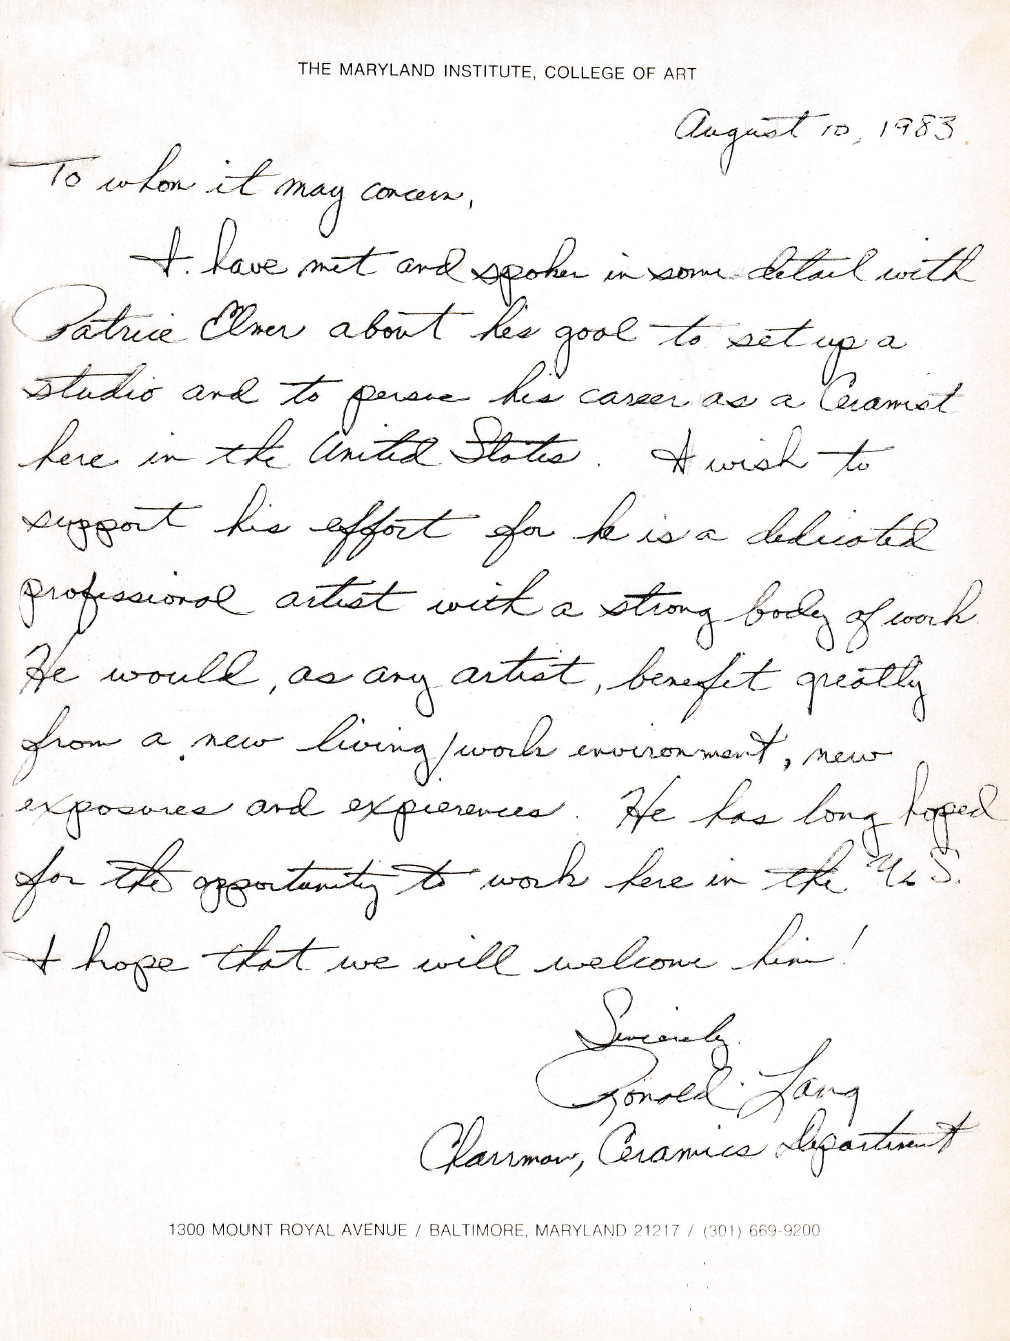 THE MARYLAND INSTITUTE, COLLEGE OF ART
August 10, 1983
To whom it may concern,
I have met and spoken in some detail with
Patrice Elmer about his goal to set up a
studio and to persue his career as a Ceramist
here in the United States. I wish to
support his effort for he is a dedicated
professional artist with a strong body of work
He would, as any artist, benefit greatly
from a new living/work environment, new
exposures and expierences. He has long hoped
for the opportunity to work here in the U.S.
I hope that we will welcome him!
Sincerely
Ronald Lang
Chairman, Ceramics Department
1300 MOUNT ROYAL AVENUE / BALTIMORE, MARYLAND 21217 / (301) 669-9200